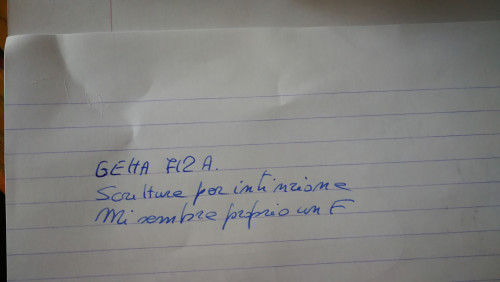 GEHA 712 A.
Scrittura per intinzione
Mi sembra proprio un F